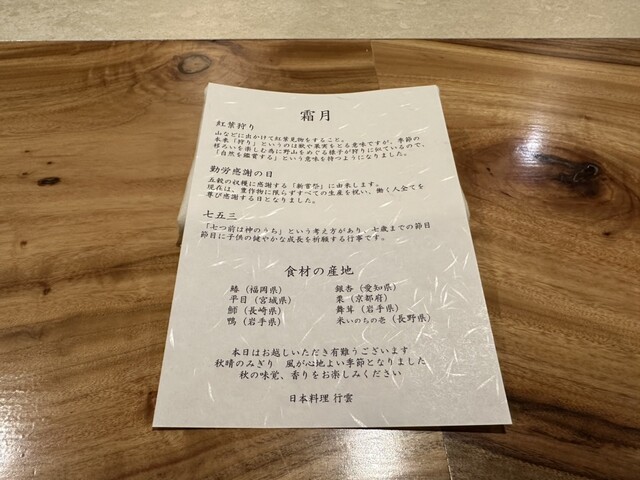 霜月
紅葉狩り
山などに出かけて紅葉見物をすること。
本来「狩り」というのは獣や果実をとる意味ですが、季節の
移ろいを楽しむ為に野山をめぐる様子が狩りに似ているので、
「自然を鑑賞する」という意味を持つようになりました。
勤労感謝の日
五穀の収穫に感謝する「新嘗祭」に由来します。
現在は、農作物に限らずすべての生産を祝い、働く人全てを
尊び感謝する日となりました。
七五三
「七つ前は神のうち」という考え方があり、七歳までの節目
節目に子供の健やかな成長を祈願する行事です。
食材の産地
鰆（福岡県） 銀杏（愛知県）
平目（宮城県） 栗（京都府）
鰤（長崎県） 舞茸（岩手県）
鴨（岩手県） 米いのちの壱（長野県）
本日はお越しいただき有難うございます
秋晴のみぎり 風が心地よい季節となりました
秋の味覚、香りをお楽しみください
日本料理 行雲